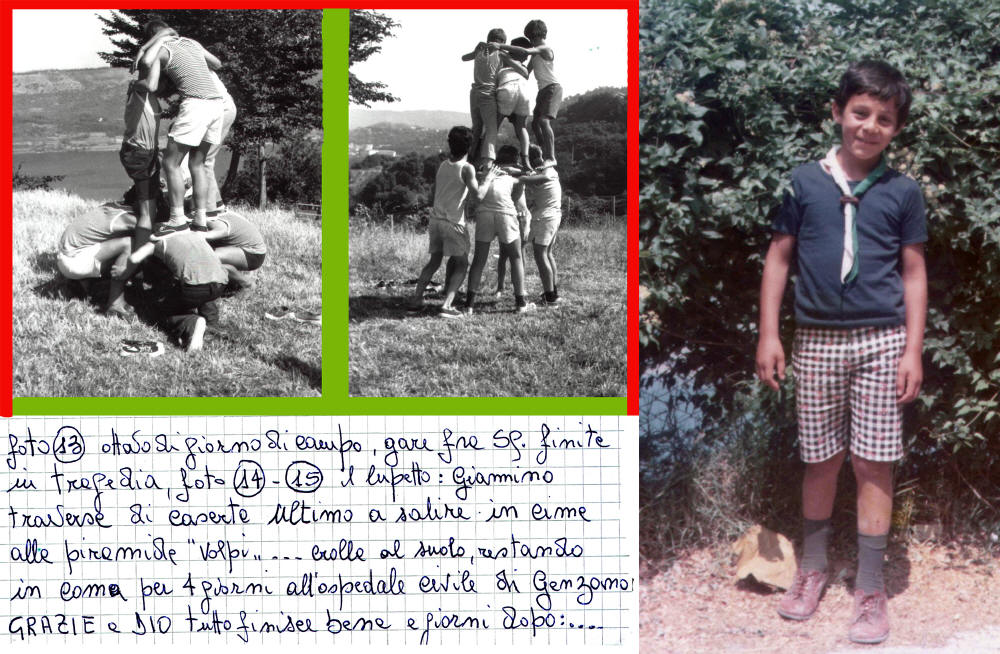 foto 13 ottavo di giorno di campo, gare fra Sq. finite
in tragedia, foto 14 - 15 il lupetto: Giannino
traverse di caserte ultimo a salire in cima
alle piramide "Volpi" .... crolle al suolo, restando
in coma per 4 giorni all'ospedale civile di Genzano
GRAZIE a DIO tutto finisce bene e giorni dopo:....